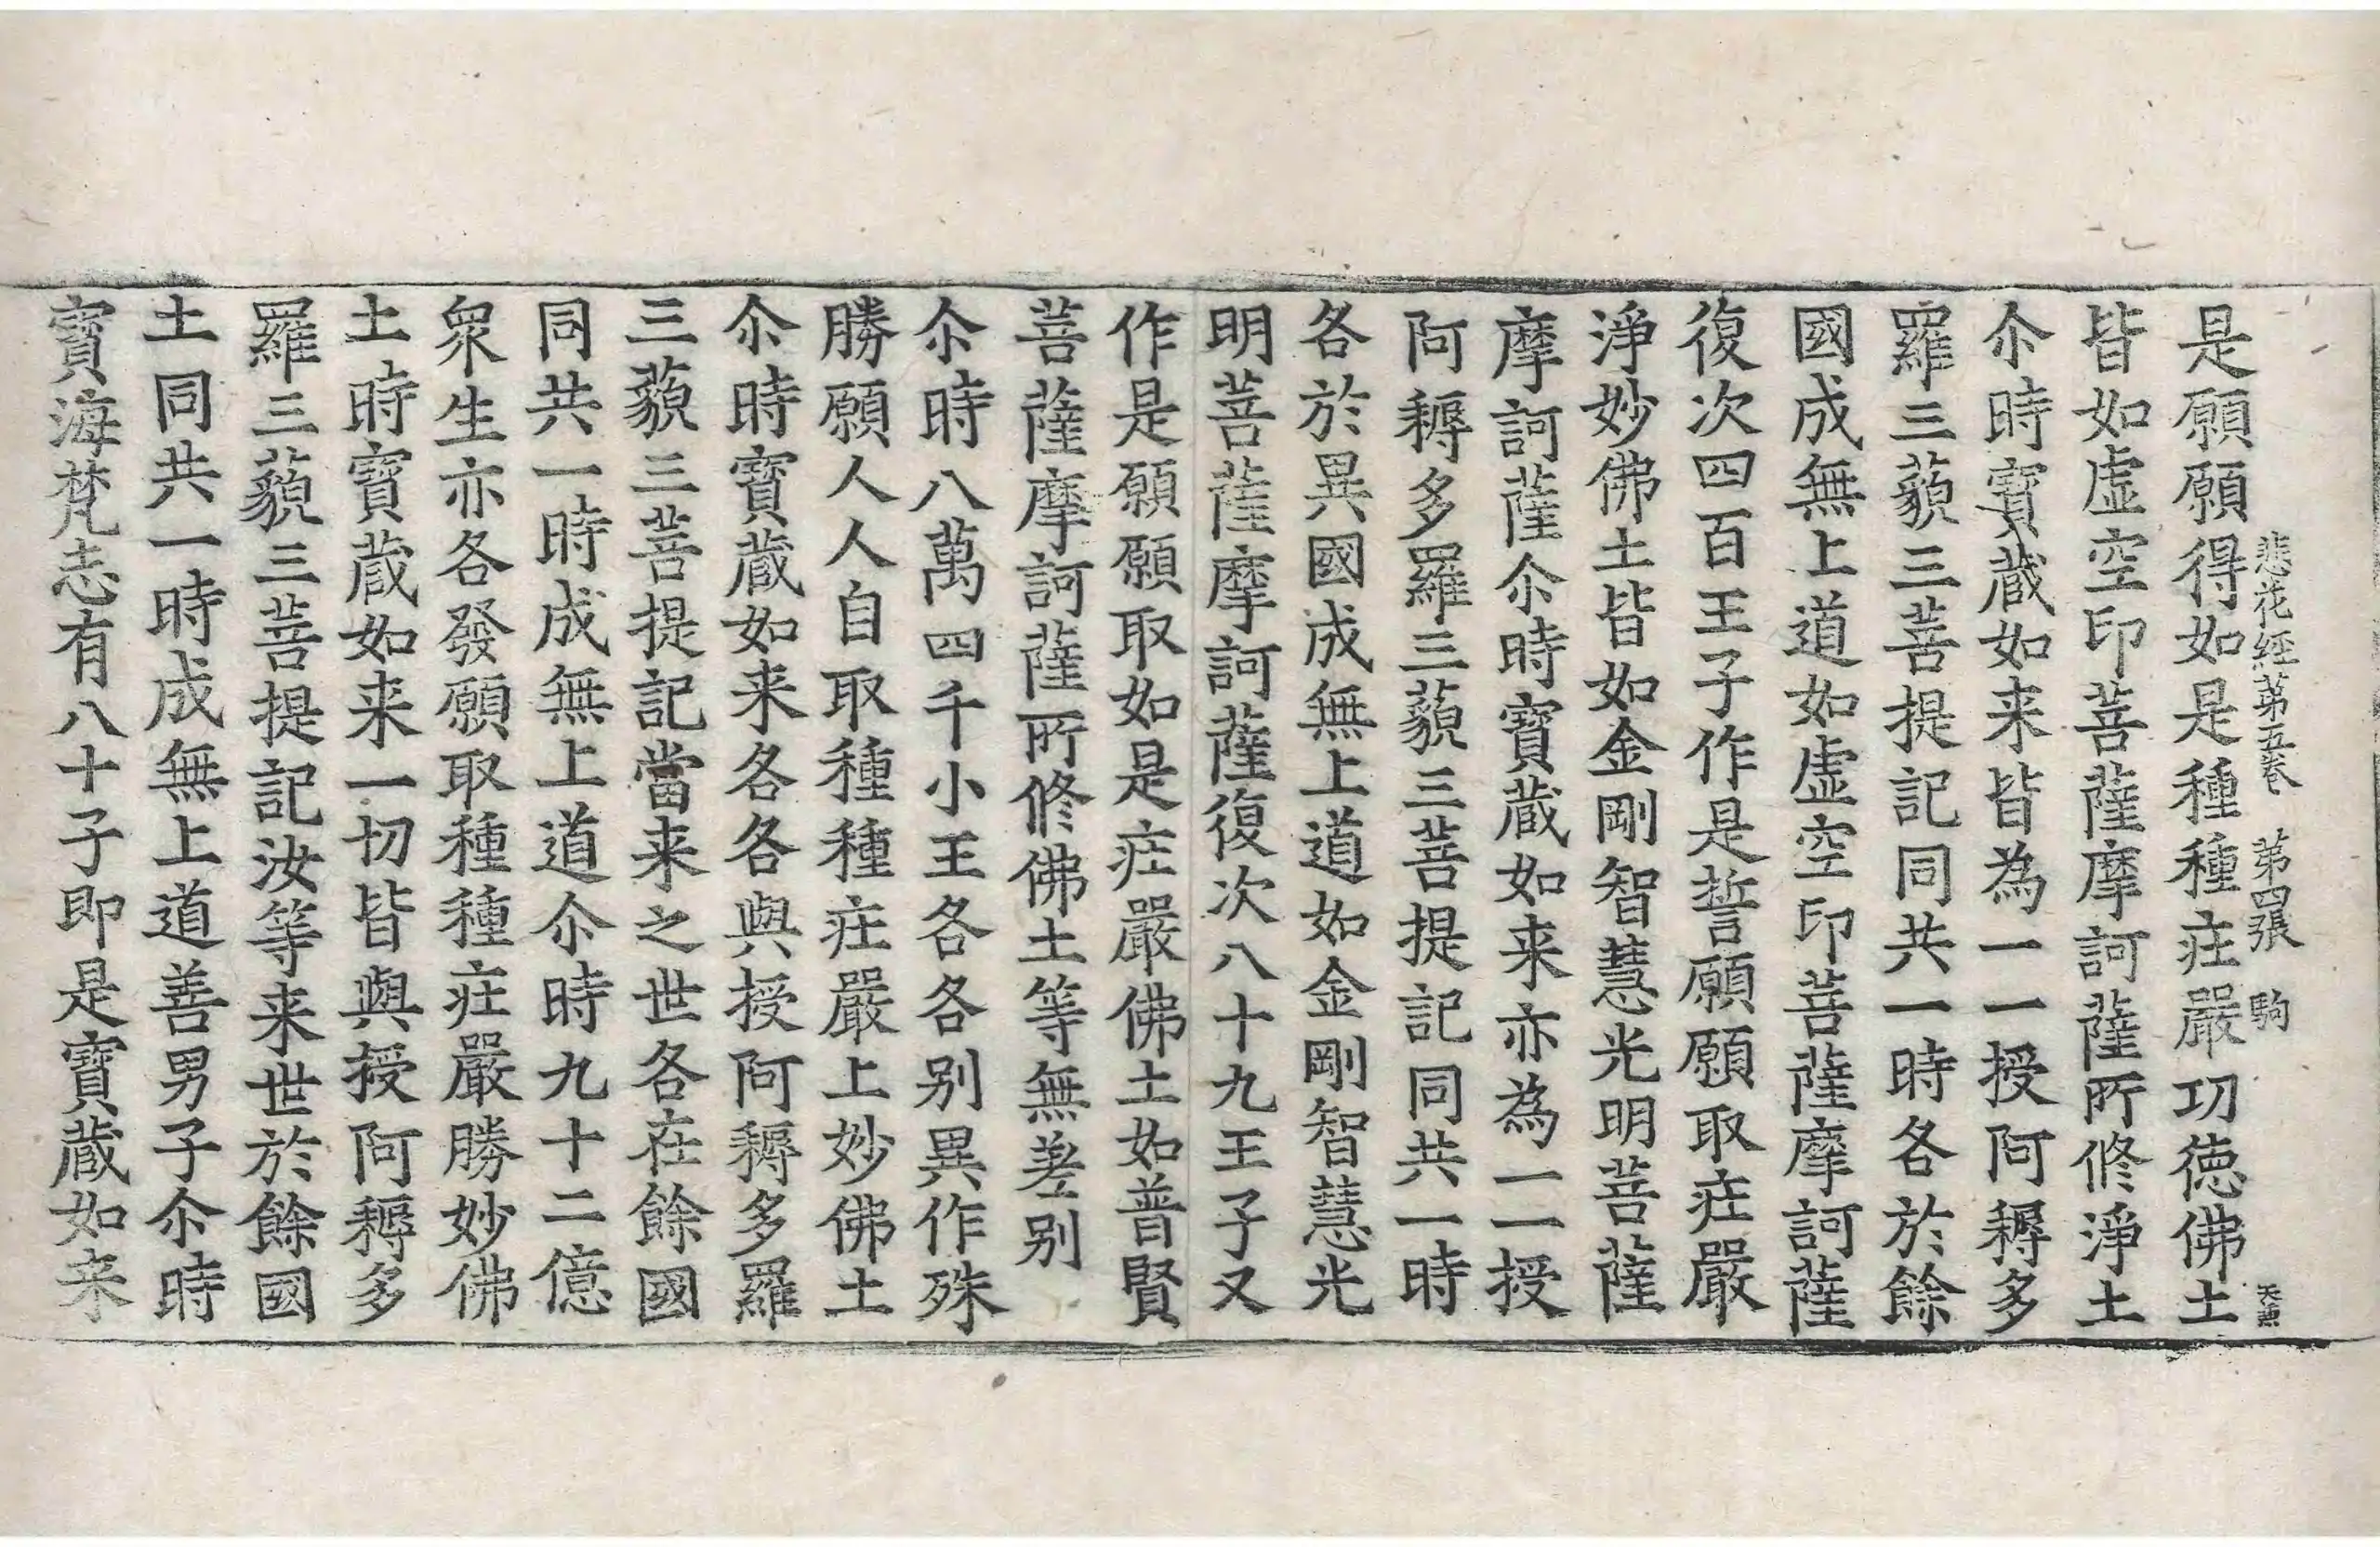 悲花經第五卷　第四張　駒
是願願得如是種種庄嚴功徳佛土
皆如虛空印菩薩摩訶薩所修淨土
尒時寶蔵如来皆為一一授阿耨多
羅三藐三菩提記同共一時各於餘
國成無上道如虛空印菩薩摩訶薩
復次四百王子作是誓願願取庄嚴
淨妙佛土皆如金剛智慧光明菩薩
摩訶薩尒時寶蔵如来亦為一一授
阿耨多羅三藐三菩提記同共一時
各於異國成無上道如金剛智慧光
明菩薩摩訶薩復次八十九王子又
作是願願取如是庄嚴佛土如普賢
菩薩摩訶薩所修佛土等無差别
尒時八萬四千小王各各别異作殊
勝願人人自取種種庄嚴上妙佛土
尒時寶蔵如来各各與授阿耨多羅
三藐三菩提記當来之世各在餘國
同共一時成無上道尒時九十二億
衆生亦各發願取種種庄嚴勝妙佛
土時寶蔵如来一切皆與授阿耨多
羅三藐三菩提記汝等来世於餘國
土同共一時成無上道善男子尒時
寶海梵志有八十子即是寶蔵如来